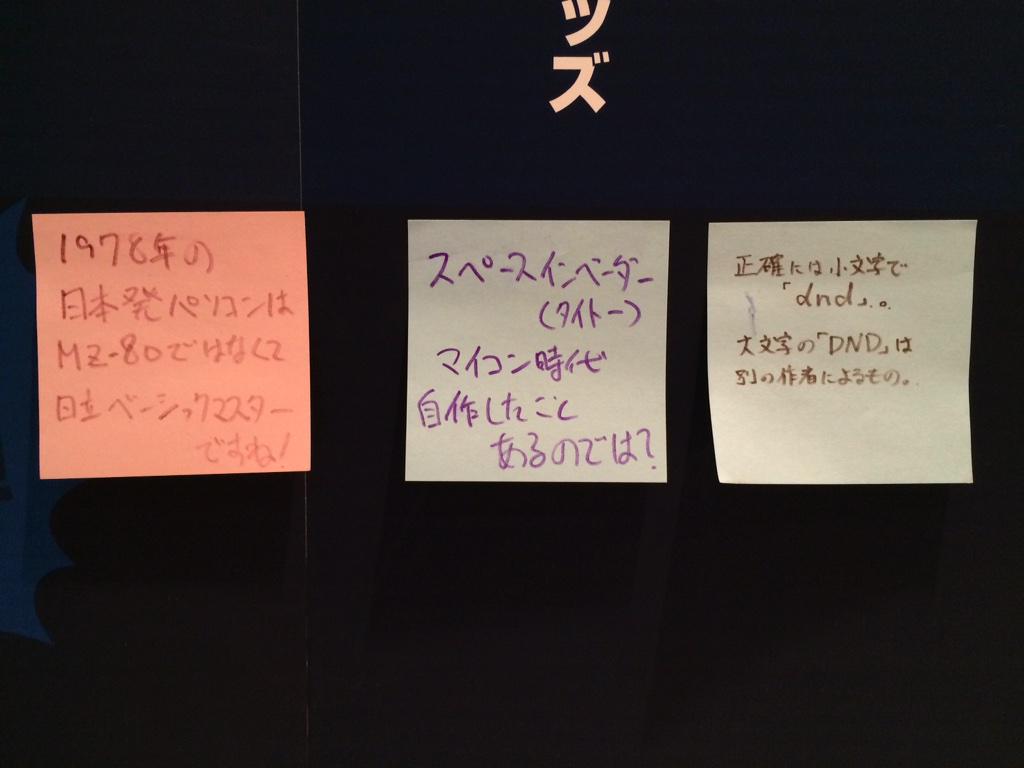 ッズ
1978年の
日本発パソコンは
MZ-80ではなくて
日立ベーシックマスター
ですね!
スペースインベーダー
(タイトー)
マイコン時代
自作したこと
あるのでは?
正確には小文字で
「dnd」。
大文字の「DND」は
別の作者によるもの。